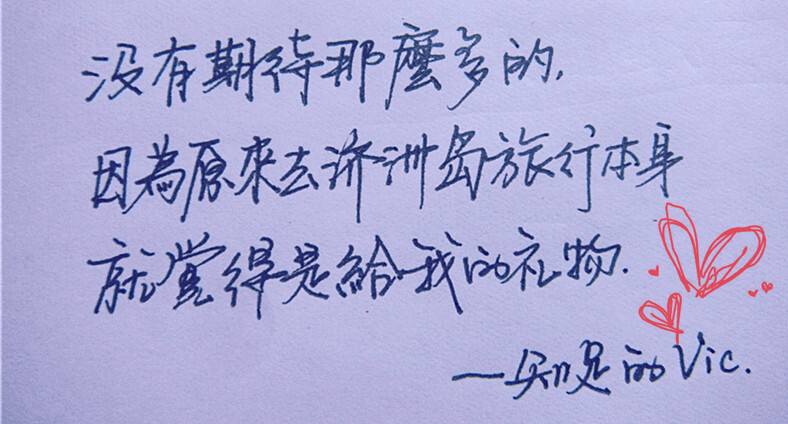 没有期待那麼多的,
因為原來去济洲岛旅行本身
就覺得是給我的礼物.
一知足的Vic.